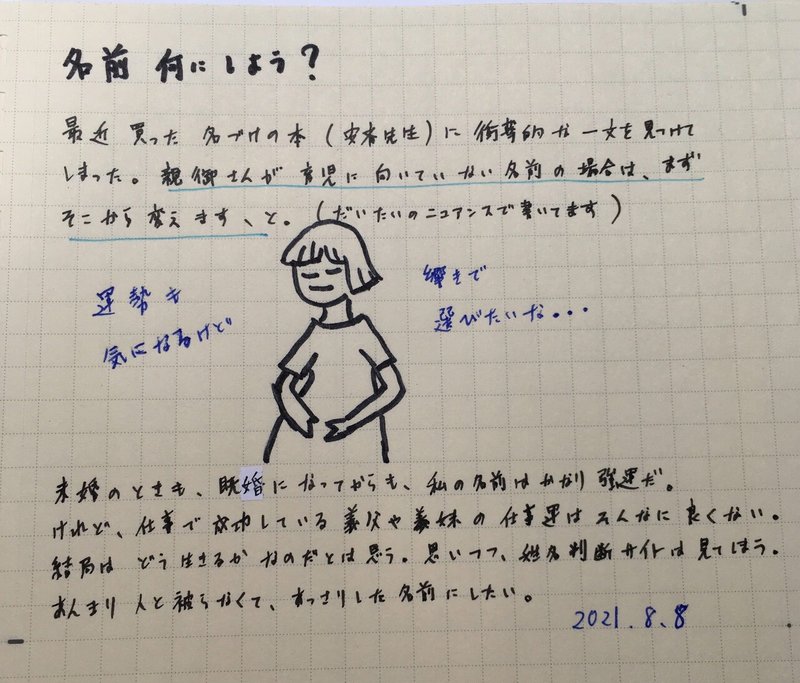 名前 何にしよう？
最近 買った 名づけの本（安斉先生）に 衝撃的な 一文を見つけて
しまった。親御さんが 育児に向いていない名前の場合は、まず
そこから変えます、と。（だいたいのニュアンスで書いてます）
運勢も
気になるけど
響きで
選びたいな・・・
未婚のときも、既婚になってからも、私の名前はかなり強運だ。
けれど、仕事で成功している義父や義妹の仕事運はそんなに良くない。
結局は どう生きるかなのだとは思う。思いつつ、姓名判断サイトは見てしまう。
あんまり人と被らなくて、あっさりした名前にしたい。
2021.8.8